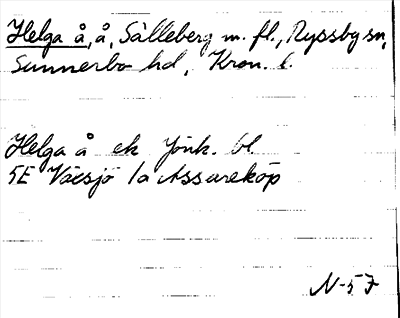 Helga å, å, Sälleberg m. fl., Ryssby sn,
Sunnerbo hd, Kron. l.
Helga å ek Jönk. bl.
5E Växsjö 1a Assareköp
N-57